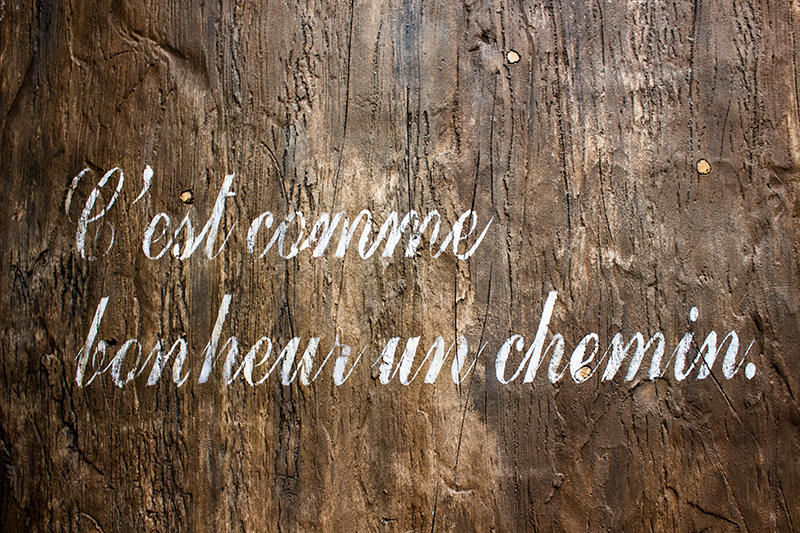 C'est comme
bonheur un chemin.